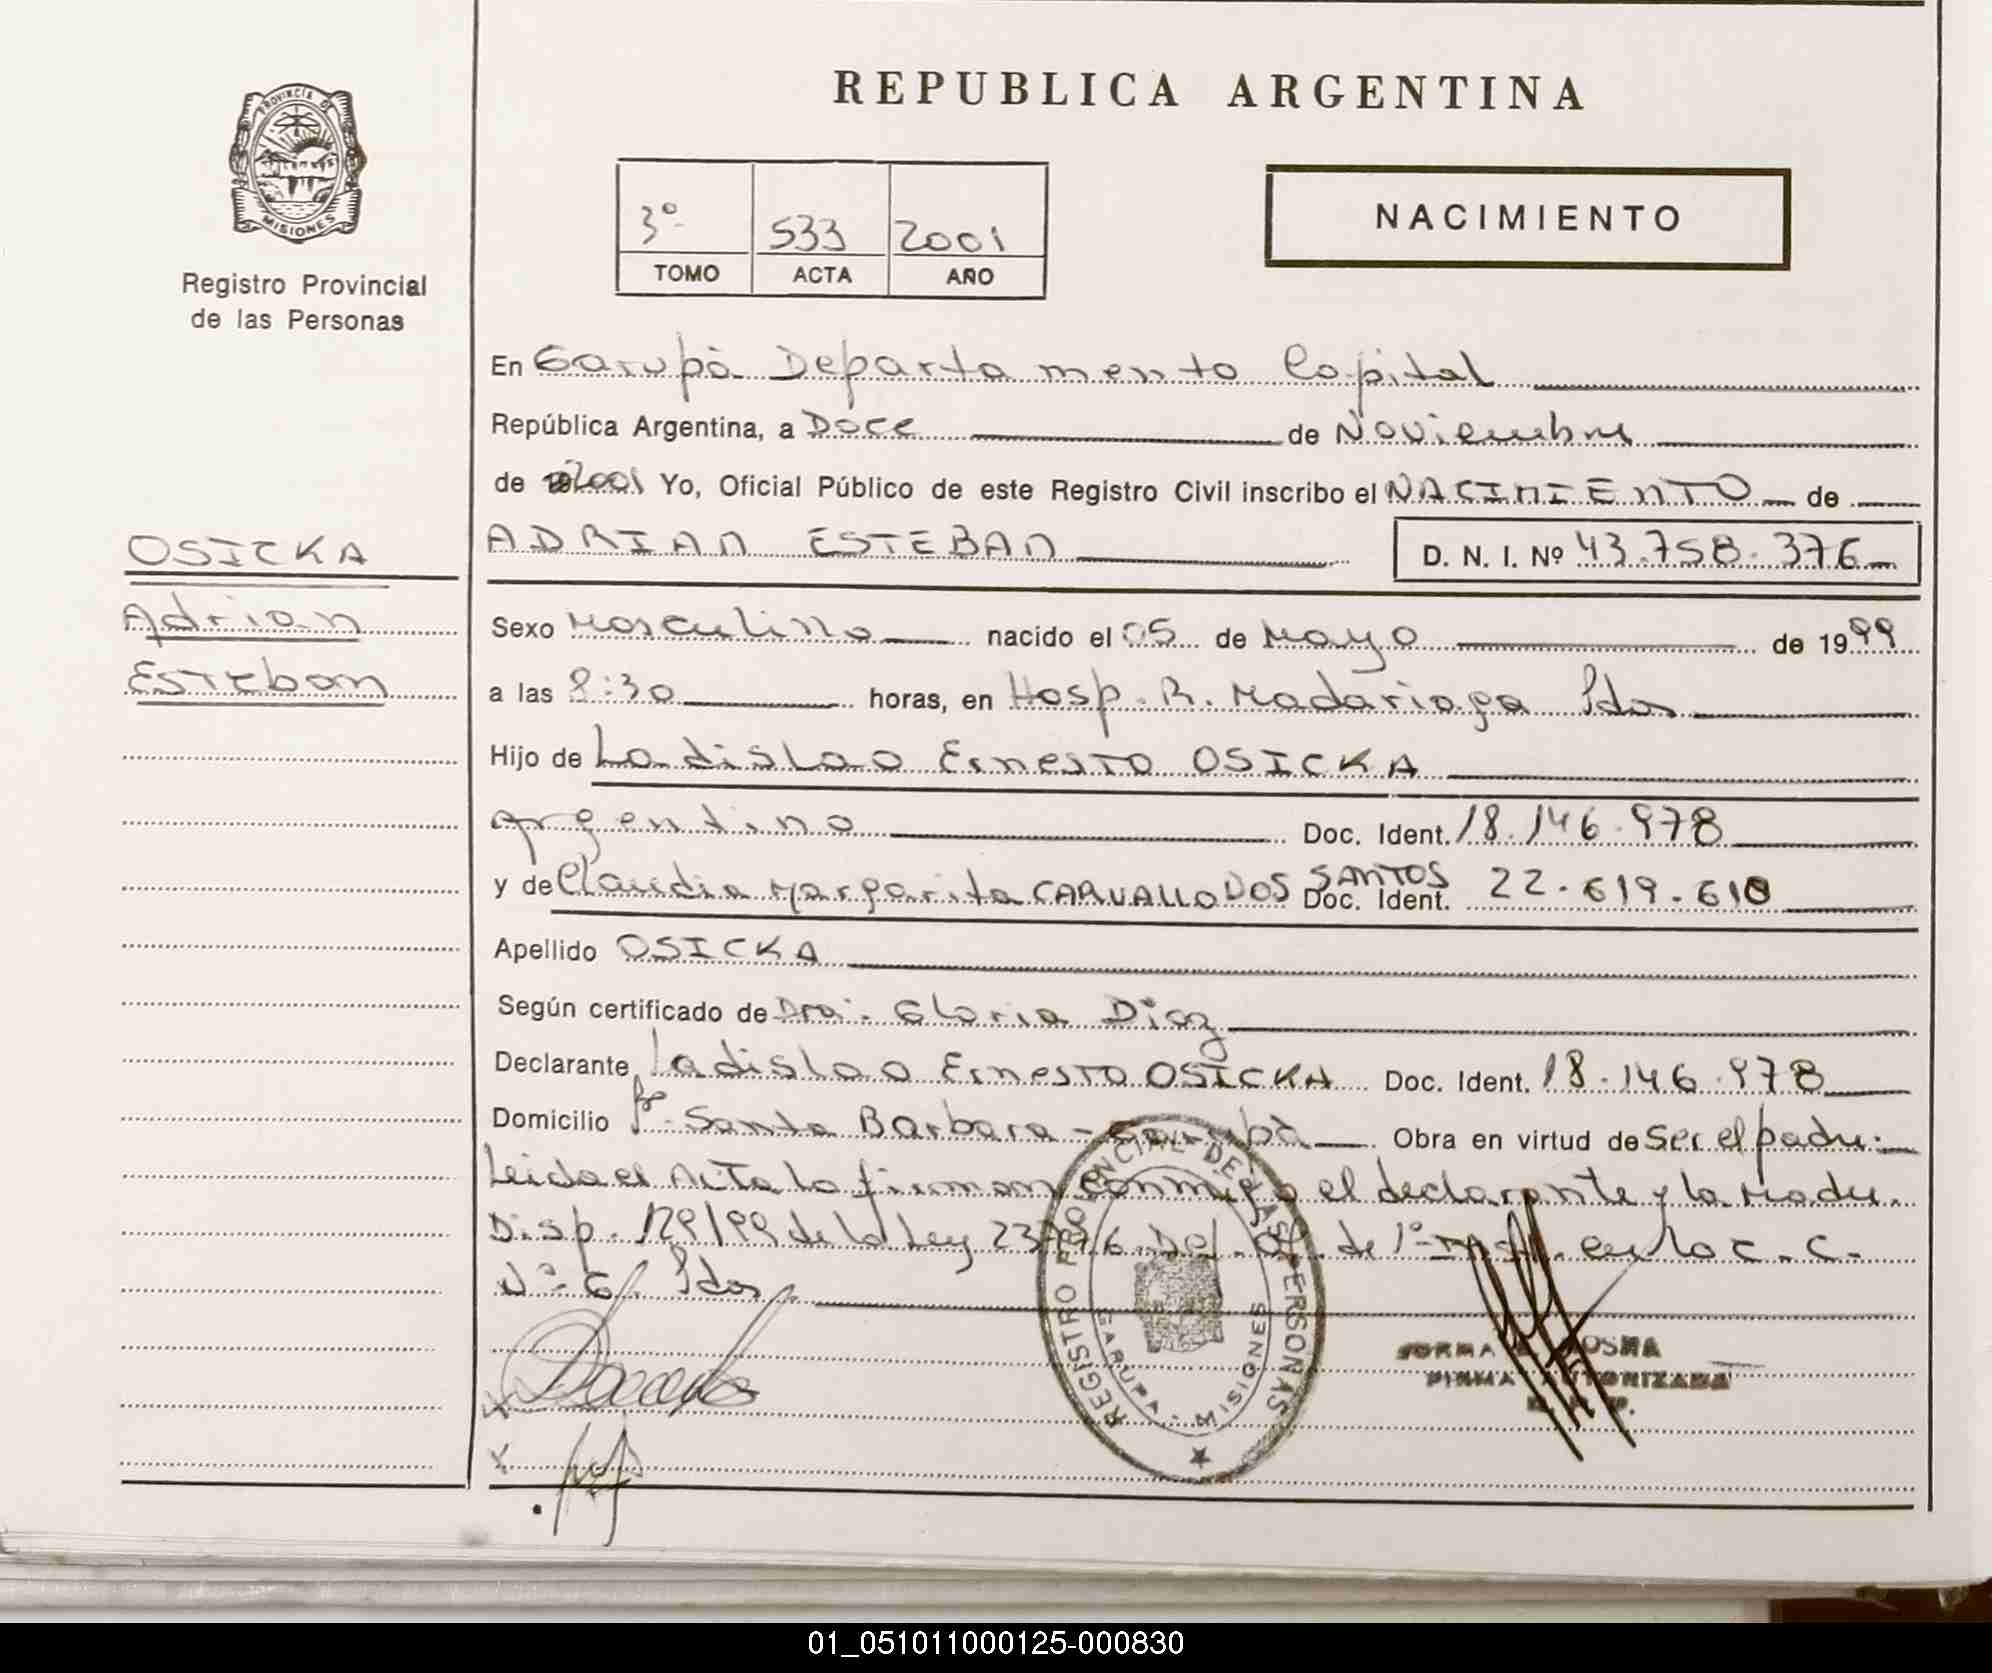 REPUBLICA ARGENTINA
PROVINCIA DE
MISIONES
Registro Provincial
de las Personas
3º 533 2001
TOMO ACTA AÑO
NACIMIENTO
En Garupá Departamento Capital
República Argentina, a Doce de Noviembre
de 2001 Yo, Oficial Público de este Registro Civil inscribo el NACIMIENTO de
OSICKA
Adrian
Esteban
ADRIAN ESTEBAN D. N. I. Nº 43.758.376
Sexo Masculino nacido el 05 de Mayo de 1999
a las 8:30 horas, en Hosp. R. Madariaga Pdas
Hijo de Ladislao Ernesto OSICKA
argentino Doc. Ident. 18.146.978
y de Claudia Margarita CARVALLO DOS SANTOS Doc. Ident. 22.619.610
Apellido OSICKA
Según certificado de Dra. Gloria Diaz
Declarante Ladislao Ernesto OSICKA Doc. Ident. 18.146.978
Domicilio Bº Santa Barbara - Garupá Obra en virtud de ser el padre.
Leida el Acta la firman conmigo el declarante y la Madre.
Disp. 129/99 de la Ley 23776 Def. Of. de 1º Inst. en lo C. C.
Nº 6. Pdas.
REGISTRO PROVINCIAL DE LAS PERSONAS
GARUPA - MISIONES
NORMA
FIRMA AUTORIZADA
01_051011000125-000830